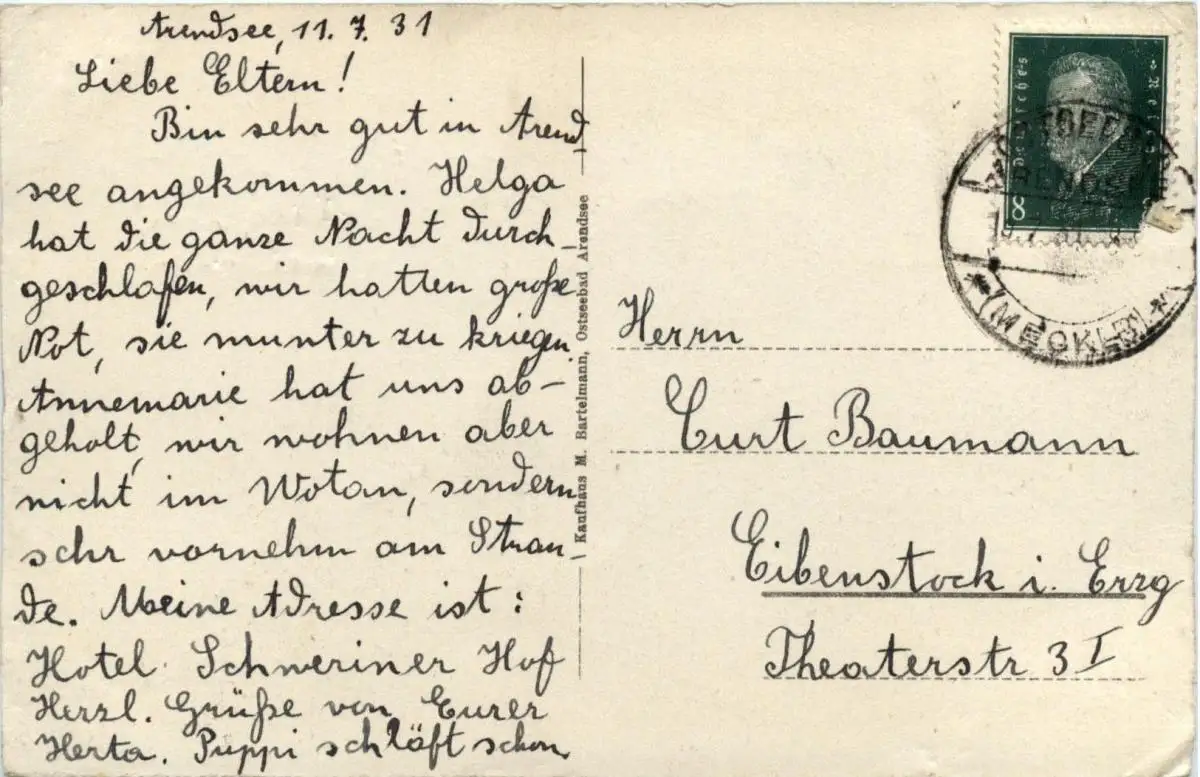 Arendsee, 11.7.31
Liebe Eltern!
Bin sehr gut in Arend-
see angekommen. Helga
hat die ganze Nacht durch-
geschlafen, wir hatten große
Not, sie munter zu kriegen.
Annemarie hat uns ab-
geholt, wir wohnen aber
nicht im Wotan, sondern
sehr vornehm am Stran-
de. Meine Adresse ist:
Hotel Schweriner Hof
Herzl. Grüße von Eurer
Herta. Puppi schläft schon
Kaufhaus M. Bartelmann, Ostseebad Arendsee
Deutsches Reich
8
OSTSEEBAD
ARENDSEE
(MECKLB)
Herrn
Curt Baumann
Eibenstock i. Erzg
Theaterstr 3 I